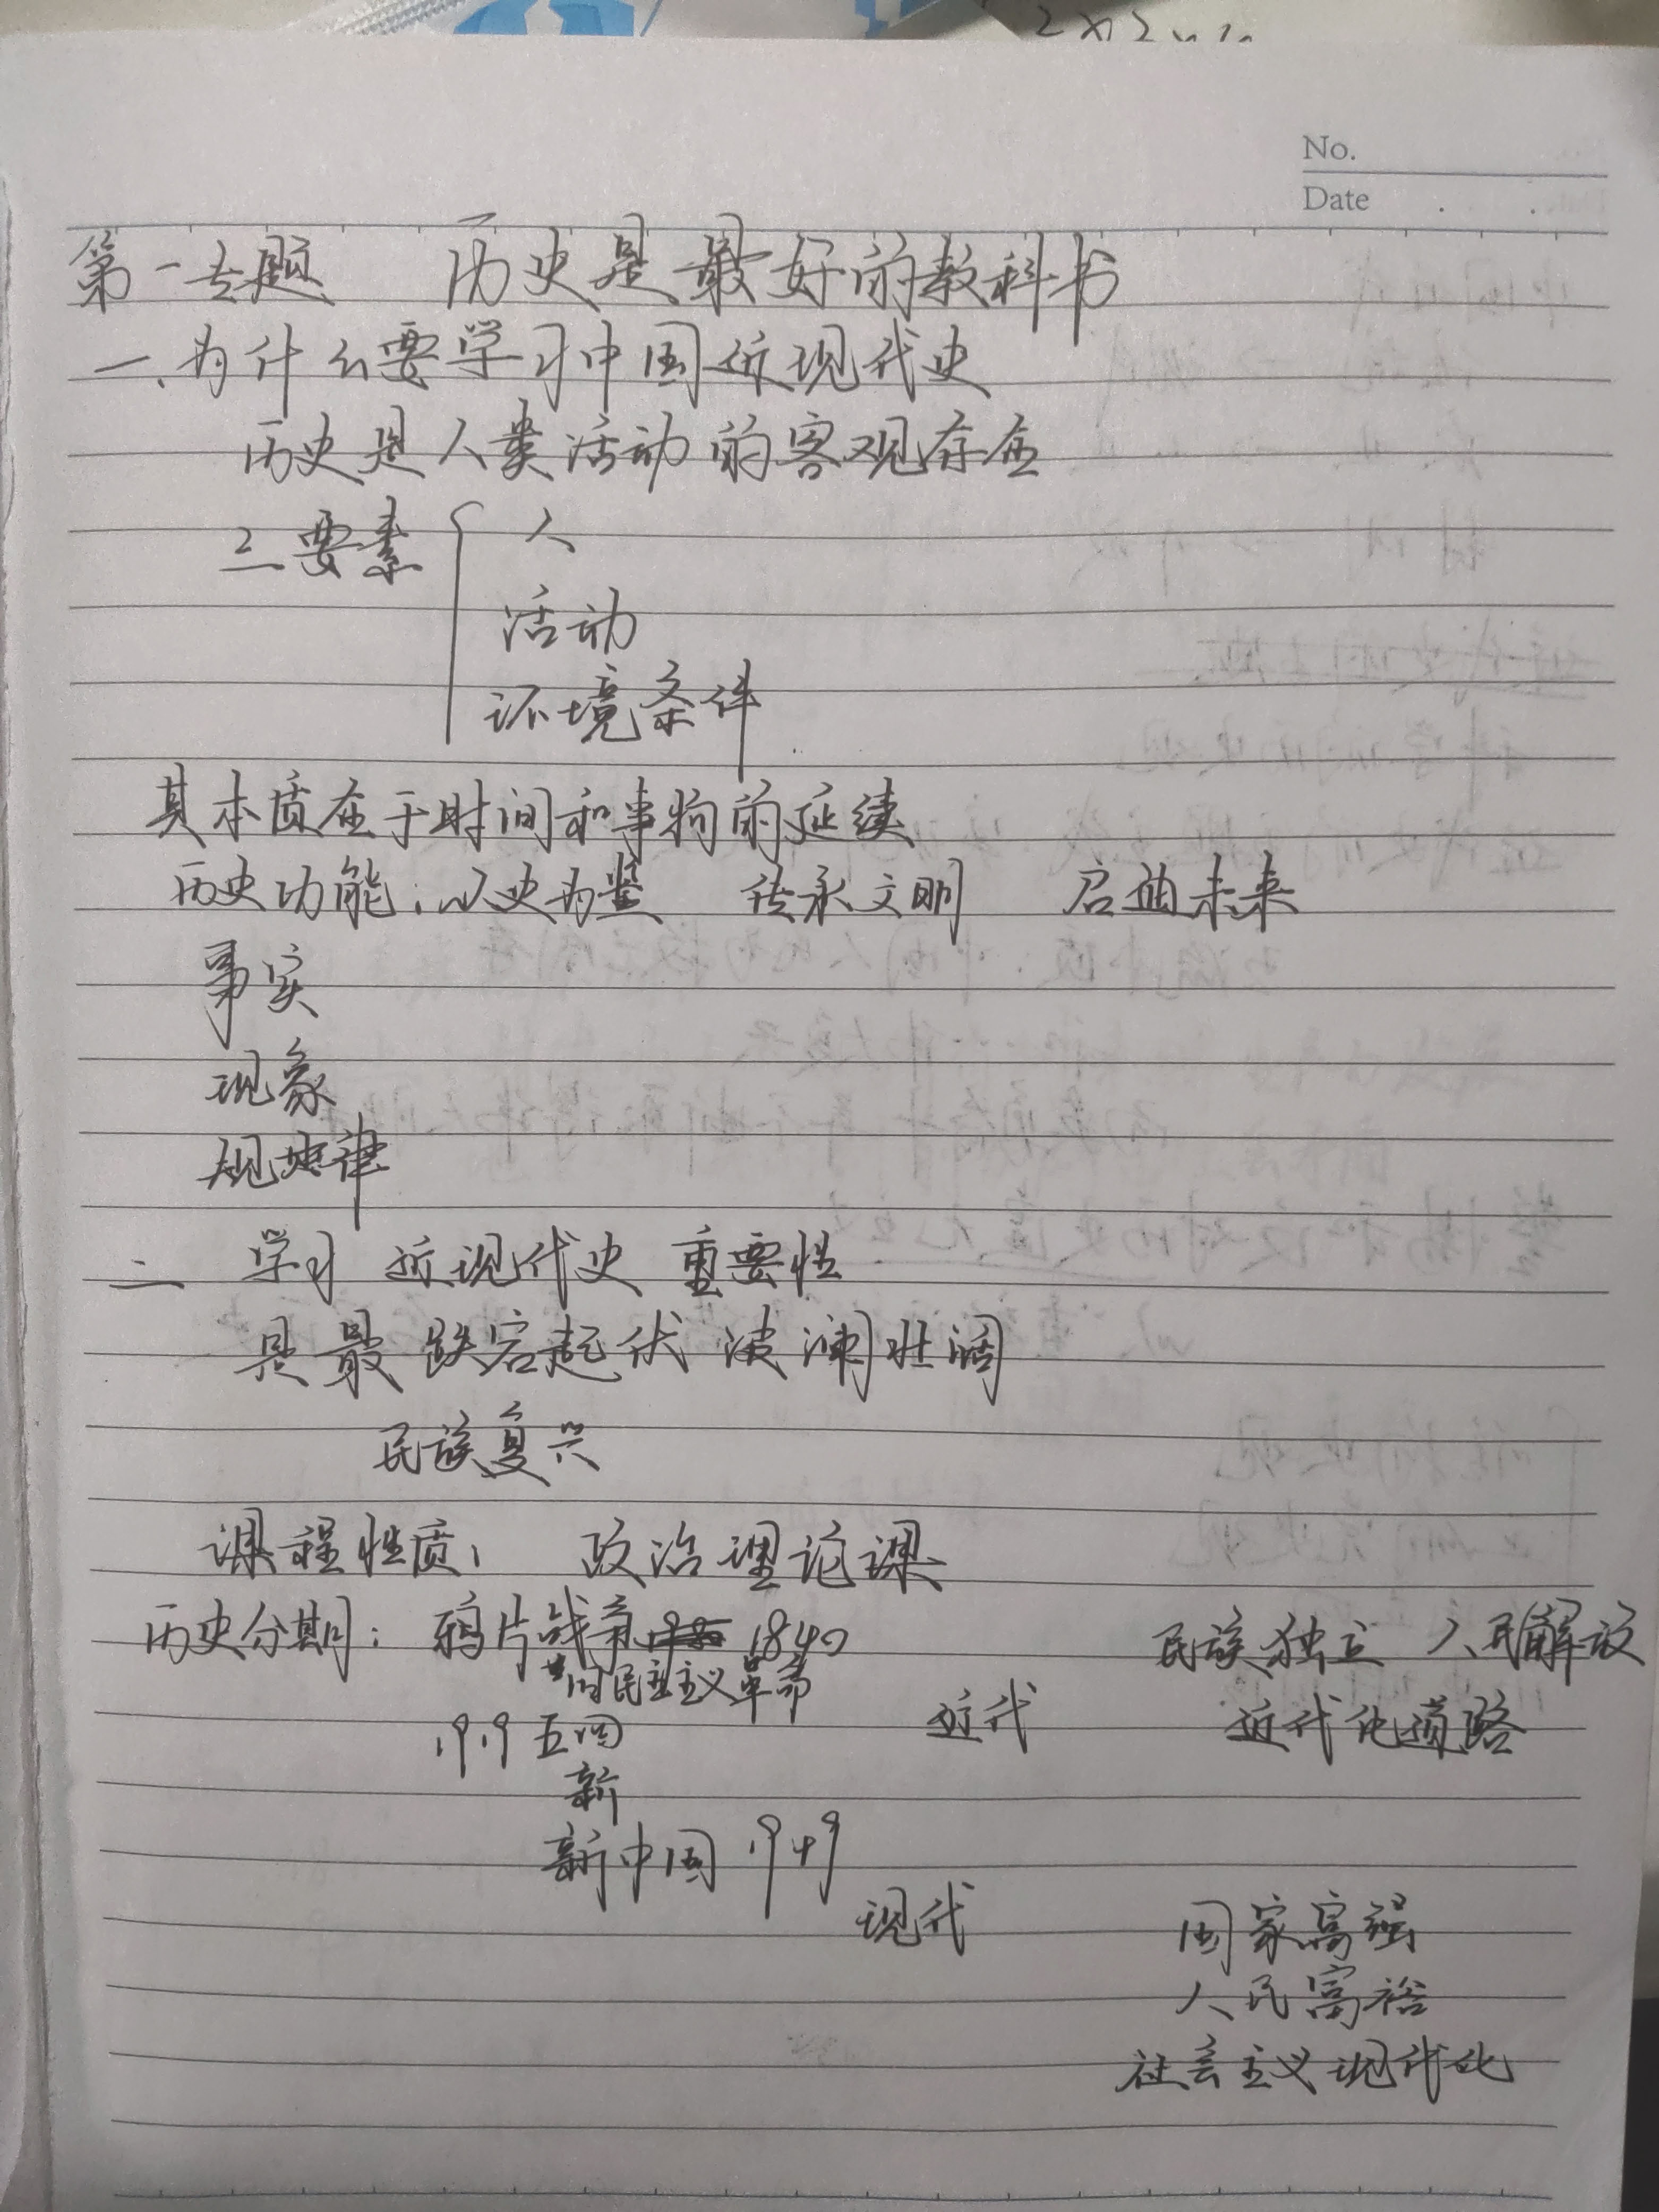 No.
Date
第一专题 历史是最好的教科书
一、为什么要学习中国近现代史
历史是人类活动的客观存在
三要素 人
活动
环境条件
其本质在于时间和事物的延续
历史功能：以史为鉴 传承文明 启迪未来
事实
现象
规律
二 学习 近现代史 重要性
是最跌宕起伏 波澜壮阔
民族复兴
课程性质： 政治理论课
历史分期：鸦片战争 1840 民族独立 人民解放
旧民主主义革命
1919 五四 近代 近代化道路
新
新中国 1949
现代 国家富强
人民富裕
社会主义现代化